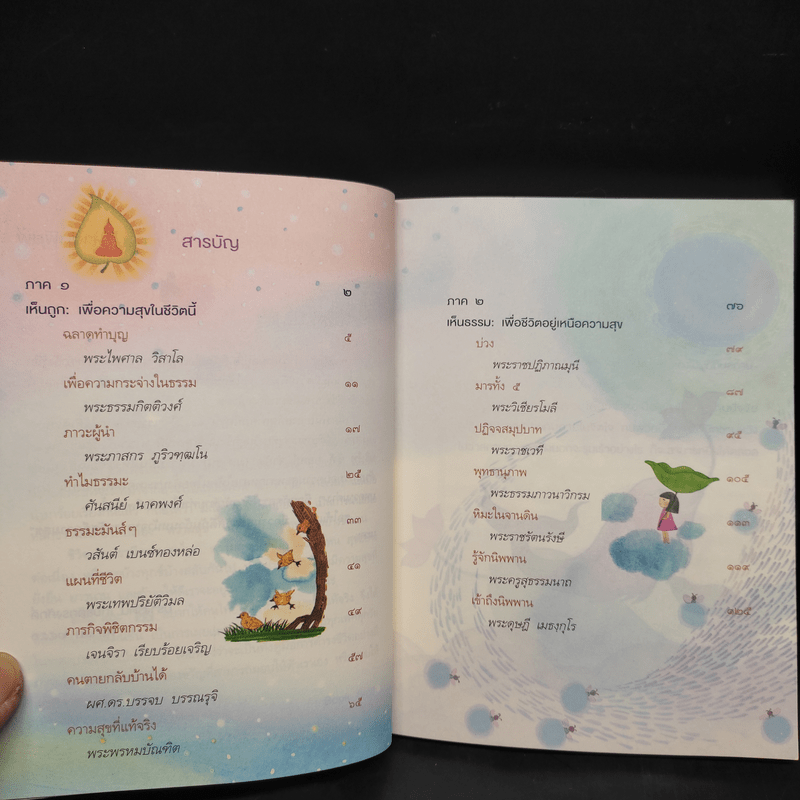 สารบัญ
ภาค ๑ ๒
เห็นถูก: เพื่อความสุขในชีวิตนี้
ฉลาดทำบุญ ๕
พระไพศาล วิสาโล
เพื่อความกระจ่างในธรรม ๑๑
พระธรรมกิตติวงศ์
ภาวะผู้นำ ๑๗
พระภาสกร ภูริวฑฺฒโน
ทำไมธรรมะ ๒๕
ศันสนีย์ นาคพงศ์
ธรรมะมันส์ๆ ๓๓
วสันต์ เบนซ์ทองหล่อ
แผนที่ชีวิต ๔๑
พระเทพปริยัติวิมล
ภารกิจพิชิตกรรม ๔๙
เจนจิรา เรียบร้อยเจริญ
คนตายกลับบ้านได้ ๕๗
ผศ.ดร.บรรจบ บรรณรุจิ
ความสุขที่แท้จริง ๖๕
พระพรหมบัณฑิต
ภาค ๒ ๗๖
เห็นธรรม: เพื่อชีวิตอยู่เหนือความสุข
บ่วง ๗๙
พระราชปฏิภาณมุนี
มารทั้ง ๕ ๘๗
พระวิเชียรโมลี
ปฏิจจสมุปบาท ๙๕
พระราชเวที
พุทธานุภาพ ๑๐๕
พระธรรมภาวนาวิกรม
หิมะในจานดิน ๑๑๓
พระราชรัตนรังษี
รู้จักนิพพาน ๑๑๙
พระครูสุธรรมนาถ
เข้าถึงนิพพาน ๑๒๕
พระดุษฎี เมธงฺกุโร